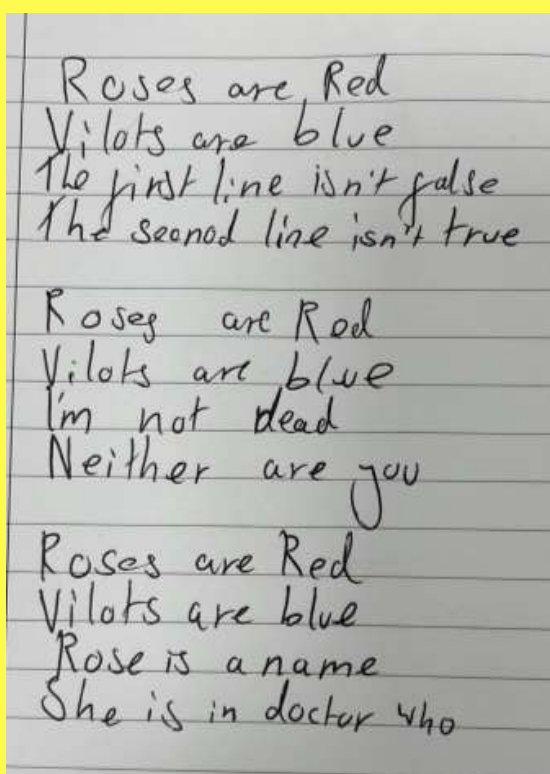 Roses are Red
Vilots are blue
The first line isn't false
The seonod line isn't true
Roses are Red
Vilots are blue
I'm not dead
Neither are you
Roses are Red
Vilots are blue
Rose is a name
She is in doctor who